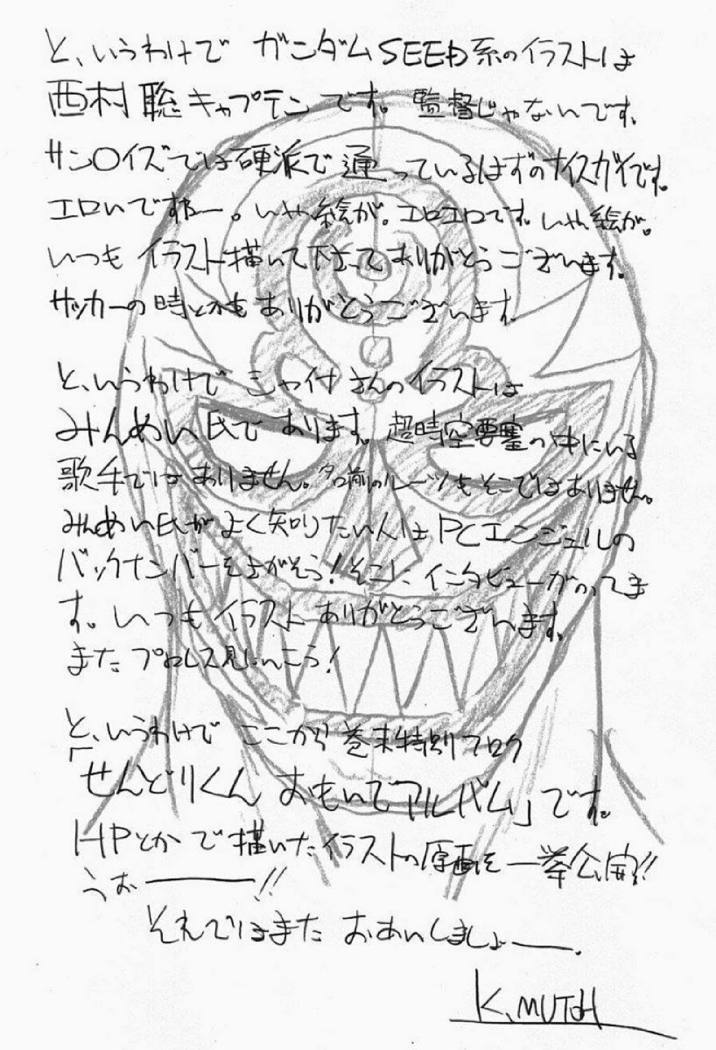 と、いうわけで ガンダムSEED系のイラストは
西村聡キャプテンです。監督じゃないです。
サン〇イズでは硬派で通っているはずのナイスガイです。
エロいですねー。いや絵が。エロエロです。いや絵が。
いつもイラスト描いて下さってありがとうございます。
サッカーの時とかもありがとうございます。
と、いうわけで さんのイラストは
みんめい氏であります。超時空要塞の中にいる
歌手ではありません。名前のルーツもそこではありません。
みんめい氏がよく知りたい人はPCエンジェルの
バックナンバーをさがそう!そこに、インタビューがのってま
す。いつもイラストありがとうございます。
またプロレス見にいこう!
と、いうわけで ここから巻末特別フロク
「せんどりくん おもいでアルバム」です。
HPとかで描いたイラストの原画を一挙公開!!
うおーーー!!
それではまた おあいしましょーー.
K.MUTOH